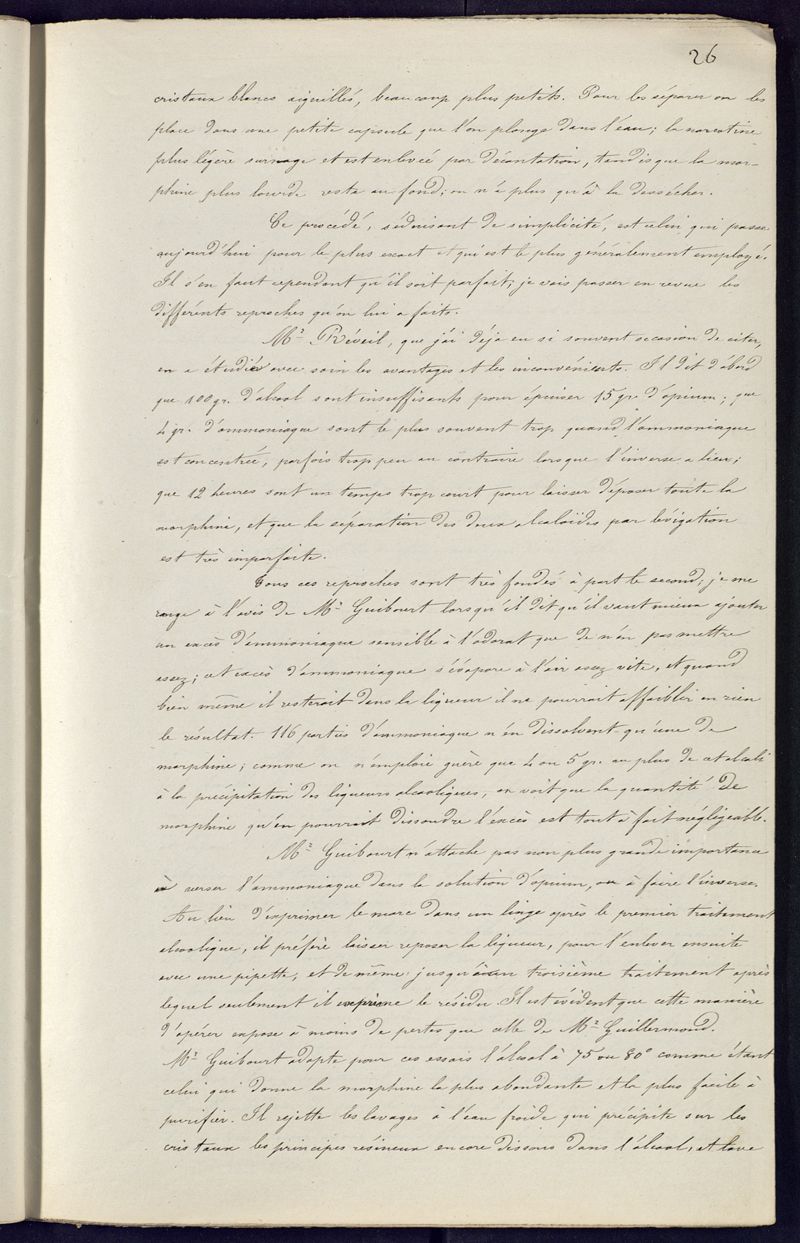 26
cristaux blancs aiguillés, beaucoup plus petits. Pour les séparer on les
place dans une petite capsule que l'on plonge dans l'eau; la narcotine
plus légère surnage et est enlevée par décantation, tandis que la mor-
phine plus lourde reste au fond; on n'a plus qu'à la dessécher.
Ce procédé, séduisant de simplicité, est celui qui passe
aujourd'hui pour le plus exact et qui est le plus généralement employé.
Il s'en faut cependant qu'il soit parfait; je vais passer en revue les
différents reproches qu'on lui a faits.
Mr Réveil, que j'ai déja eu si souvent occasion de citer,
en a étudié avec soin les avantages et les inconvénients. Il dit d'abord
que 100 gr. d'alcool sont insuffisants pour épuiser 15 gr. d'opium; que
4 gr. d'ammoniaque sont le plus souvent trop quand l'ammoniaque
est concentrée, parfois trop peu au contraire lorsque l'inverse a lieu;
que 12 heures sont un temps trop court pour laisser déposer toute la
morphine, et que la séparation des deux alcaloïdes par lévigation
est très imparfaite.
Tous ces reproches sont très fondés à part le second; je me
range à l'avis de Mr Guibourt lorsqu'il dit qu'il vaut mieux ajouter
un excès d'ammoniaque sensible à l'odorat que de n'en pas mettre
assez; cet excès d'ammoniaque s'évapore à l'air assez vite, et quand
bien même il resterait dans la liqueur il ne pourrait affaiblir en rien
le résultat. 116 parties d'ammoniaque n'en dissolvent qu'une de
morphine; comme on n'emploie guère que 4 ou 5 gr. au plus de cet alcali
à la précipitation des liqueurs alcooliques, on voit que la quantité de
morphine qu'en pourrait dissoudre l'excès est tout à fait négligeable.
Mr Guibourt n'attache pas non plus grande importance
à verser l'ammoniaque dans la solution d'opium, ou à faire l'inverse.
Au lieu d'exprimer le marc dans un linge après le premier traitement
alcoolique, il préfère laisser reposer la liqueur, pour l'enlever ensuite
avec une pipette, et de même jusqu'à un troisième traitement après
lequel seulement il exprime le résidu. Il est évident que cette manière
d'opérer expose à moins de pertes que celle de Mr Guillermond.
Mr Guibourt adopte pour ces essais l'alcool à 75 ou 80° comme étant
celui qui donne la morphine la plus abondante et la plus facile à
purifier. Il rejette les lavages à l'eau froide qui précipite sur les
cristaux les principes résineux encore dissous dans l'alcool, et lave